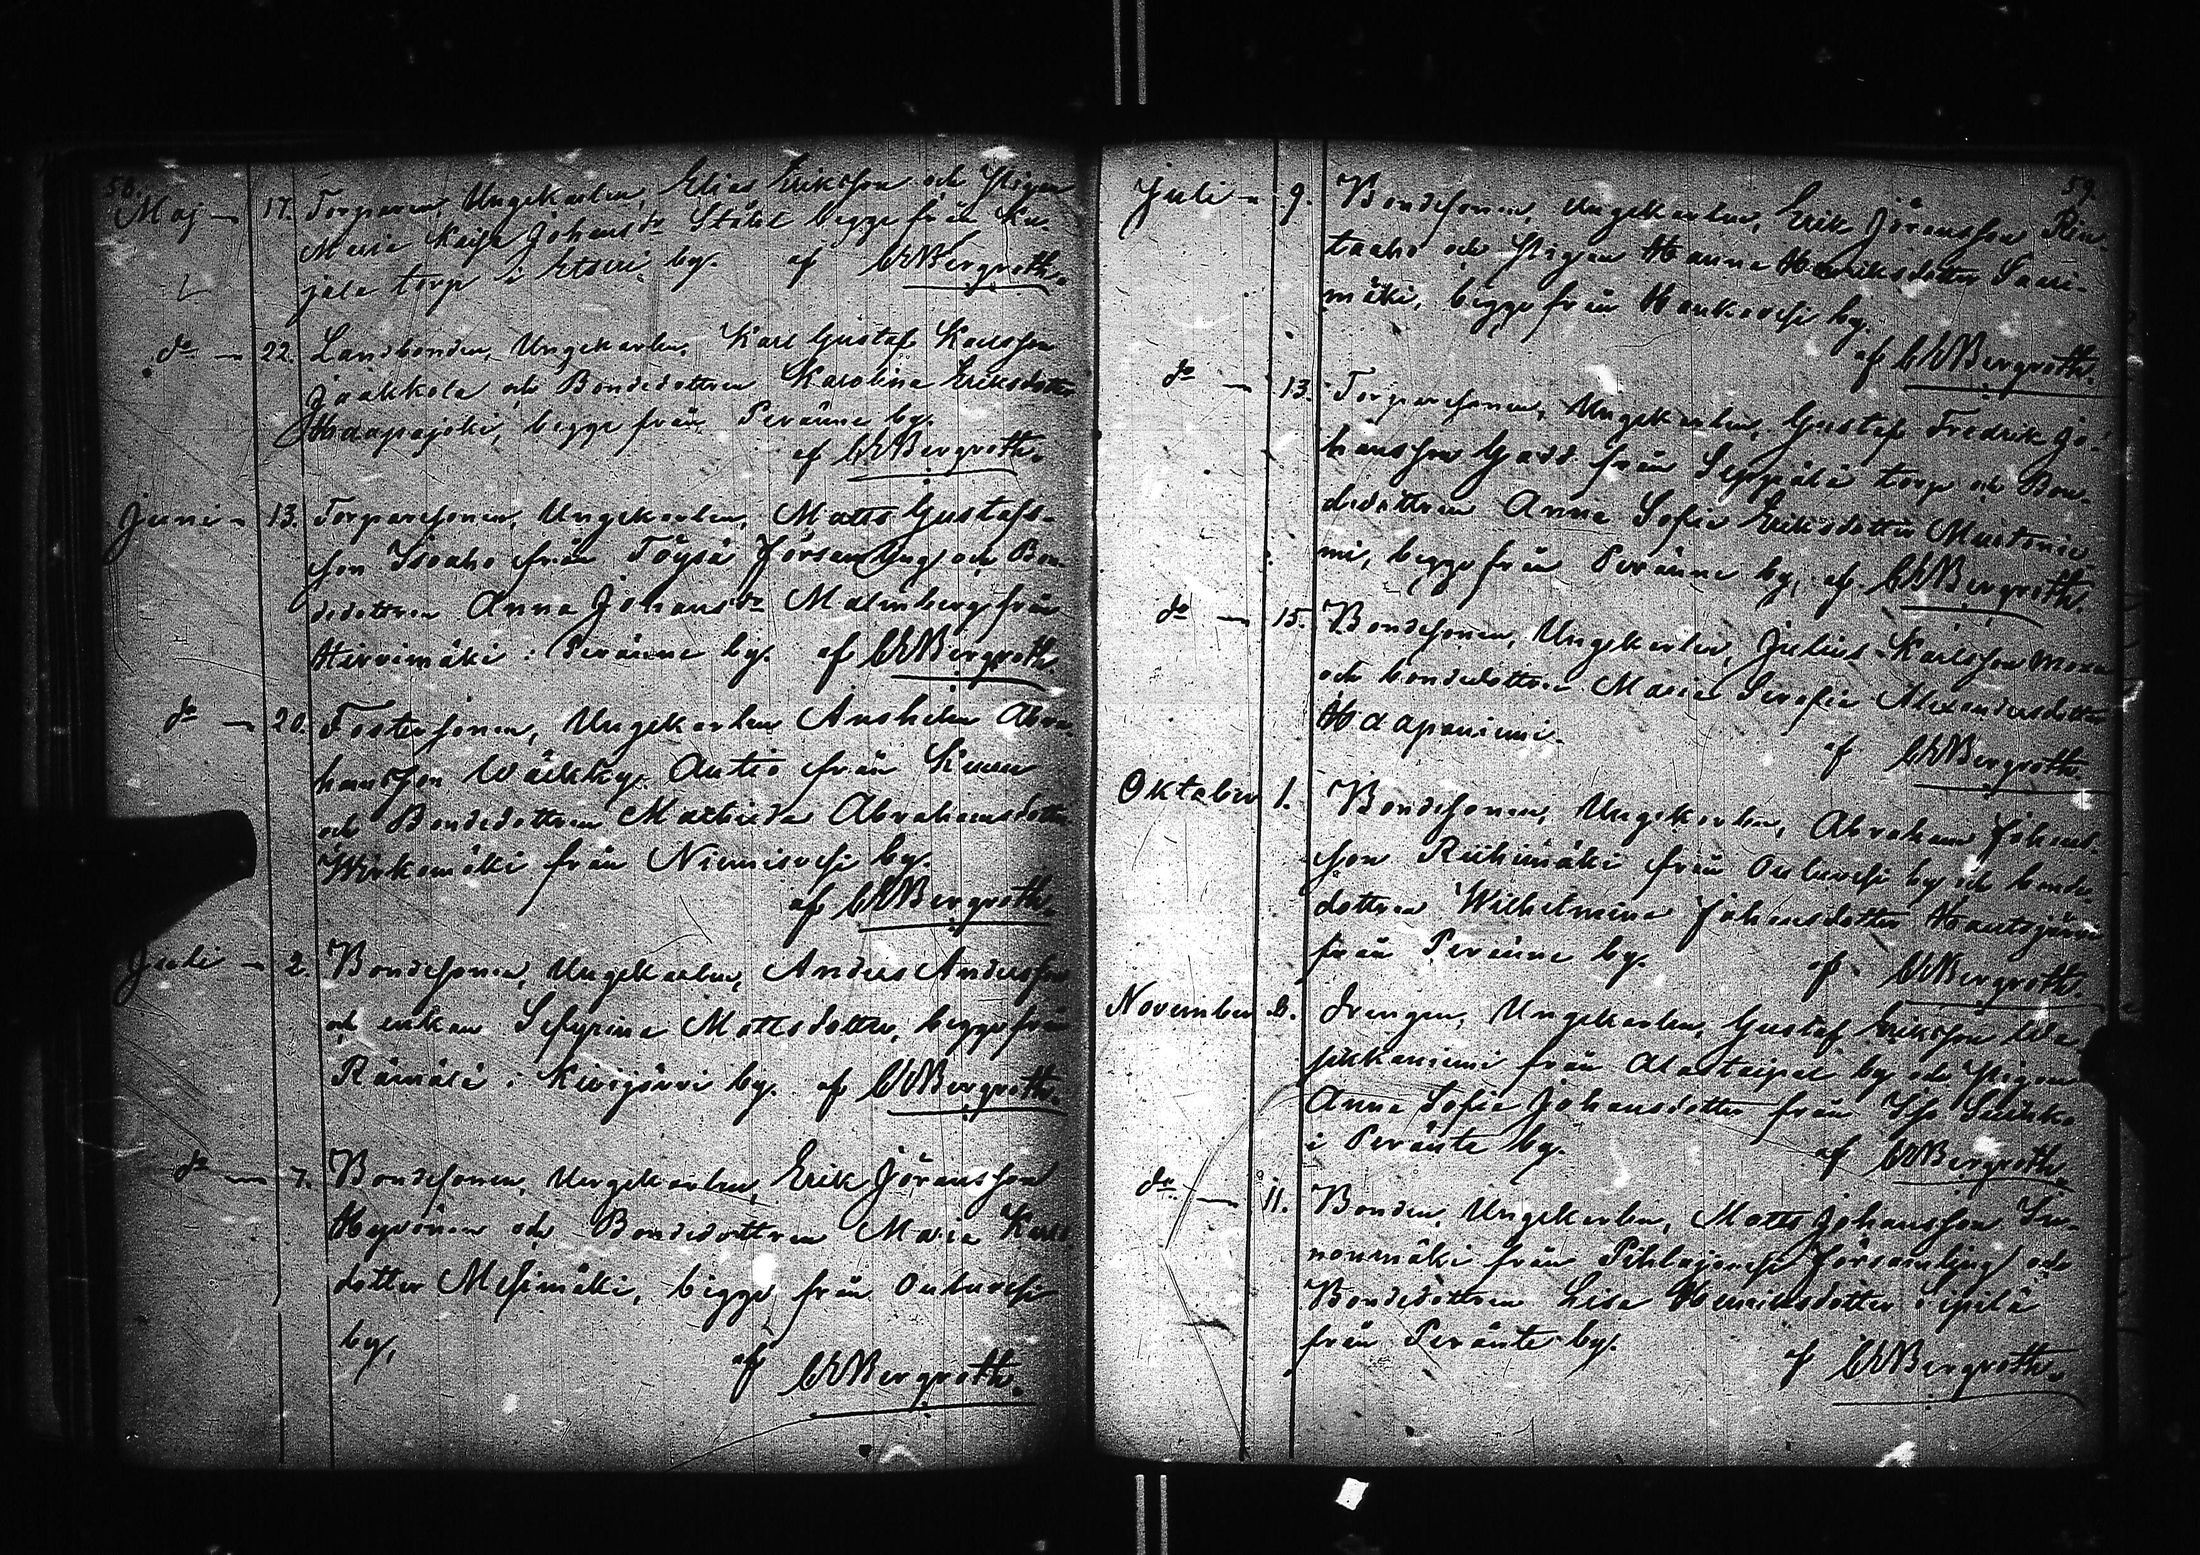 58.
Maj — 17. Torparen, Ungekarlen, Elias Eriksson och Pigan
Maria Kaisa Johansdr Ståhl begge från Ka-
jala torp i Etseri by. af CEBergroth.
do — 22. Landbonden, Ungekarlen, Karl Gustaf Karlsson
Jaakkola och Bondedottren Karolina Eriksdotter
Haapajoki, begge från Peränne by.
af CEBergroth.
Juni — 13. Torparesonen, Ungekarlen, Matts Gustafs-
son Isoaho från Töysä Församling och Bon-
dedottren Anna Johansdr Malmberg från
Hirvimäki i Peränne by. af CEBergroth.
do — 20. Fostersonen, Ungekarlen Anshelm Abra-
hamsson Antio från
och Bondedottren Matilda Abrahamsdotter
Wirkamäki från Niemisvesi by.
af CEBergroth.
Juli — 2. Bondesonen, Ungekarlen, Anders Andersson
och enkan Sefyrina Mattsdotter, begge från
Rämälä i Kivijärvi by. af CEBergroth.
do — 7. Bondesonen, Ungekarlen, Erik Jöransson
Hyvönen och Bondedottren Maria Karls-
dotter Mesimäki, begge från Ouluvesi
by, af CEBergroth.
59.
Juli — 9. Bondesonen, Ungekarlen, Erik Jöransson Rin-
taaho och Pigan Hanna Henriksdotter Saari-
mäki, begge från Hankavesi by.
af CEBergroth.
do — 13. Torparesonen, Ungekarlen, Gustaf Fredrik Jo-
hansson Gadd från Seppälä torp och Bon-
dedottren Anna Sofia Eriksdotter Martonie-
mi, begge från Peränne by, af CEBergroth.
do — 15. Bondesonen, Ungekarlen, Julius Karlsson
och bondedottren Maria Serafia Alexandersdotter
Haapaniemi. af CEBergroth.
Oktober 1. Bondesonen, Ungekarlen, Abraham Johans-
son Riihimäki från Ouluvesi by och bonde-
dottren Wilhelmina Johansdotter Hautajärvi
från Peränne by. af CEBergroth.
November Drengen, Ungekarlen, Gustaf Eriksson
från Alastaipal by och Pigan
Anna Sofia Johansdotter från
i Peränte by. af CEBergroth.
do — 11. Bonden, Ungekarlen, Matts Johansson
från Pihlajavesi församling och
Bondedottren Lisa Henriksdotter Sipilä
från Peränte by. af CEBergroth.